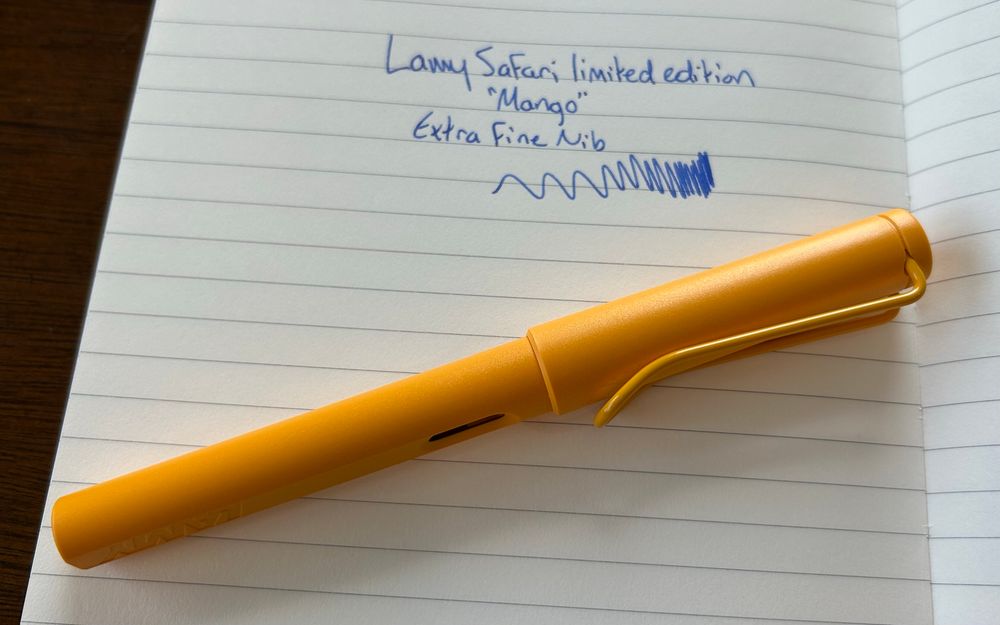 Lamy Safari limited edition
"Mango"
Extra Fine Nib
LAMY